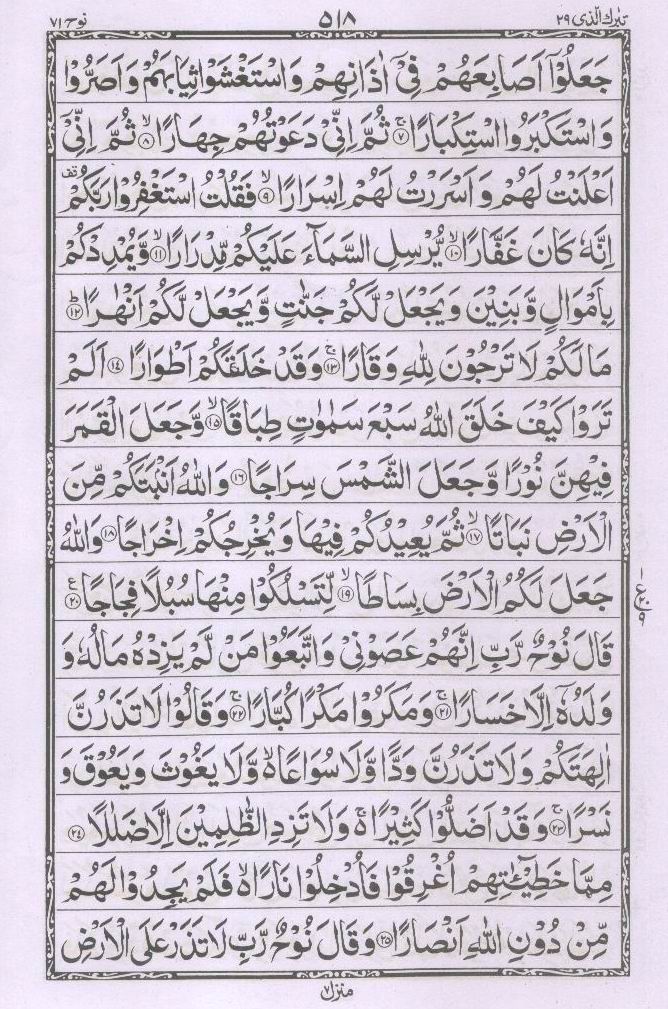 تبرك الذي ٢٩ ٥١٨ نوح ٧١
جَعَلُوْٓا اَصَابِعَهُمْ فِيْٓ اٰذَانِهِمْ وَاسْتَغْشَوْا ثِيَابَهُمْ وَاَصَرُّوْا
وَاسْتَكْبَرُوا اسْتِكْبَارًا ۚ‏﴿۷﴾ ثُمَّ اِنِّيْ دَعَوْتُهُمْ جِهَارًا ۙ‏﴿۸﴾ ثُمَّ اِنِّيْٓ
اَعْلَنْتُ لَهُمْ وَاَسْرَرْتُ لَهُمْ اِسْرَارًا ۙ‏﴿۹﴾ فَقُلْتُ اسْتَغْفِرُوْا رَبَّكُمْ قف
اِنَّهٗ كَانَ غَفَّارًا ۙ‏﴿۱۰﴾ يُّرْسِلِ السَّمَآءَ عَلَيْكُمْ مِّدْرَارًا ۙ‏﴿۱۱﴾ وَّيُمْدِدْكُمْ
بِاَمْوَالٍ وَّبَنِيْنَ وَيَجْعَلْ لَّكُمْ جَنّٰتٍ وَّيَجْعَلْ لَّكُمْ اَنْهٰرًا ؕ‏﴿۱۲﴾
مَا لَكُمْ لَا تَرْجُوْنَ لِلّٰهِ وَقَارًا ۚ‏﴿۱۳﴾ وَقَدْ خَلَقَكُمْ اَطْوَارًا ‏﴿۱۴﴾ اَلَمْ
تَرَوْا كَيْفَ خَلَقَ اللّٰهُ سَبْعَ سَمٰوٰتٍ طِبَاقًا ۙ‏﴿۱۵﴾ وَّجَعَلَ الْقَمَرَ
فِيْهِنَّ نُوْرًا وَّجَعَلَ الشَّمْسَ سِرَاجًا ‏﴿۱۶﴾ وَاللّٰهُ اَنْۢبَتَكُمْ مِّنَ
الْاَرْضِ نَبَاتًا ۙ‏﴿۱۷﴾ ثُمَّ يُعِيْدُكُمْ فِيْهَا وَيُخْرِجُكُمْ اِخْرَاجًا ‏﴿۱۸﴾ وَاللّٰهُ
جَعَلَ لَكُمُ الْاَرْضَ بِسَاطًا ۙ‏﴿۱۹﴾ لِّتَسْلُكُوْا مِنْهَا سُبُلًا فِجَاجًا ‏﴿۲۰﴾ ع
قَالَ نُوْحٌ رَّبِّ اِنَّهُمْ عَصَوْنِيْ وَاتَّبَعُوْا مَنْ لَّمْ يَزِدْهُ مَالُهٗ وَ
وَلَدُهٗٓ اِلَّا خَسَارًا ۚ‏﴿۲۱﴾ وَمَكَرُوْا مَكْرًا كُبَّارًا ۚ‏﴿۲۲﴾ وَقَالُوْا لَا تَذَرُنَّ
اٰلِهَتَكُمْ وَلَا تَذَرُنَّ وَدًّا وَّلَا سُوَاعًا ۙ۬ وَّلَا يَغُوْثَ وَيَعُوْقَ وَ
نَسْرًا ۚ‏﴿۲۳﴾ وَقَدْ اَضَلُّوْا كَثِيْرًا ۚ۬ وَلَا تَزِدِ الظّٰلِمِيْنَ اِلَّا ضَلٰلًا ‏﴿۲۴﴾
مِمَّا خَطِيْٓـٰٔتِهِمْ اُغْرِقُوْا فَاُدْخِلُوْا نَارًا ۙ۬ فَلَمْ يَجِدُوْا لَهُمْ
مِّنْ دُوْنِ اللّٰهِ اَنْصَارًا ‏﴿۲۵﴾ وَقَالَ نُوْحٌ رَّبِّ لَا تَذَرْ عَلَى الْاَرْضِ
منزل ٧